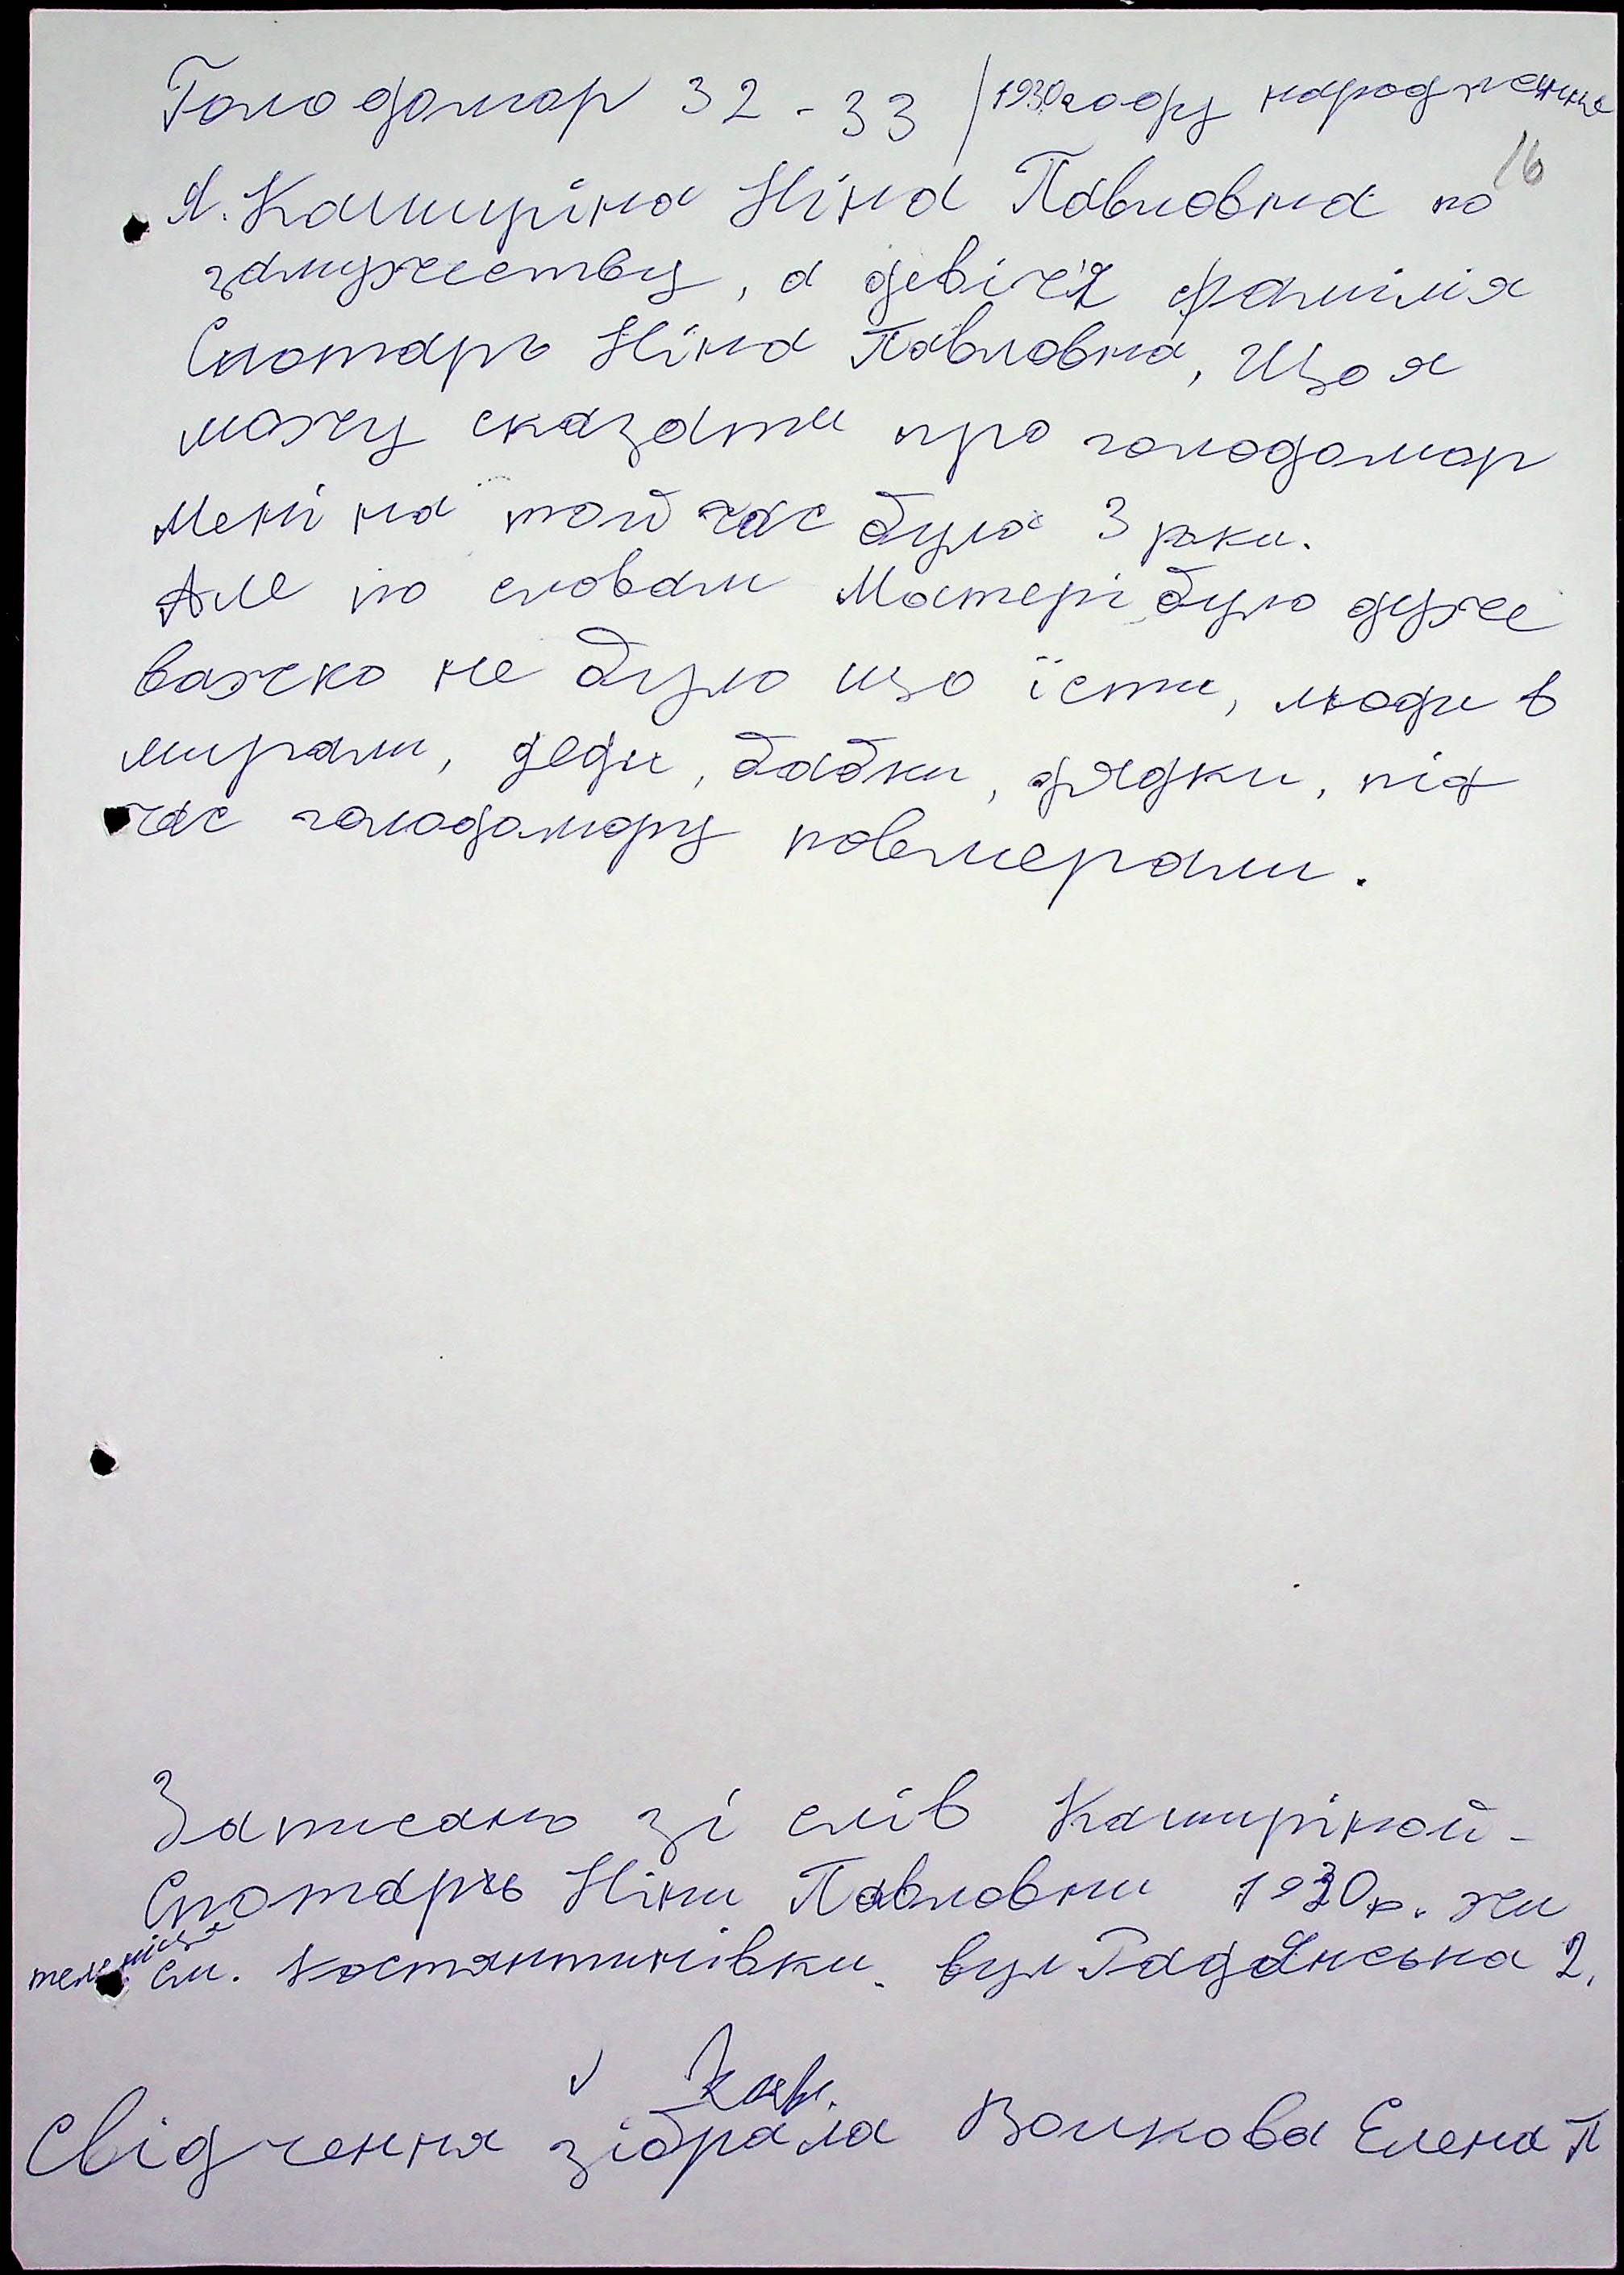 Голодомор 32 - 33 / 1930 году народження
16
Я. Каширіна Ніна Павловна по
замужеству, а девіч'я фамілія
Слотарь Ніна Павловна, Що я
можу сказати про голодомор
Мені на той час було 3 роки.
Але по словам Матері було дуже
важко не було що їсти, люди в
мирали, деди, бабки, дядки, під
час голодомору повмерали.
Записано зі слів Каширіной -
Слотарь Ніни Павловни 1930 р. жи
тельніця см. Костянтинівки. вул Радянська 2.
Свідчення зібрала Волкова Елена П